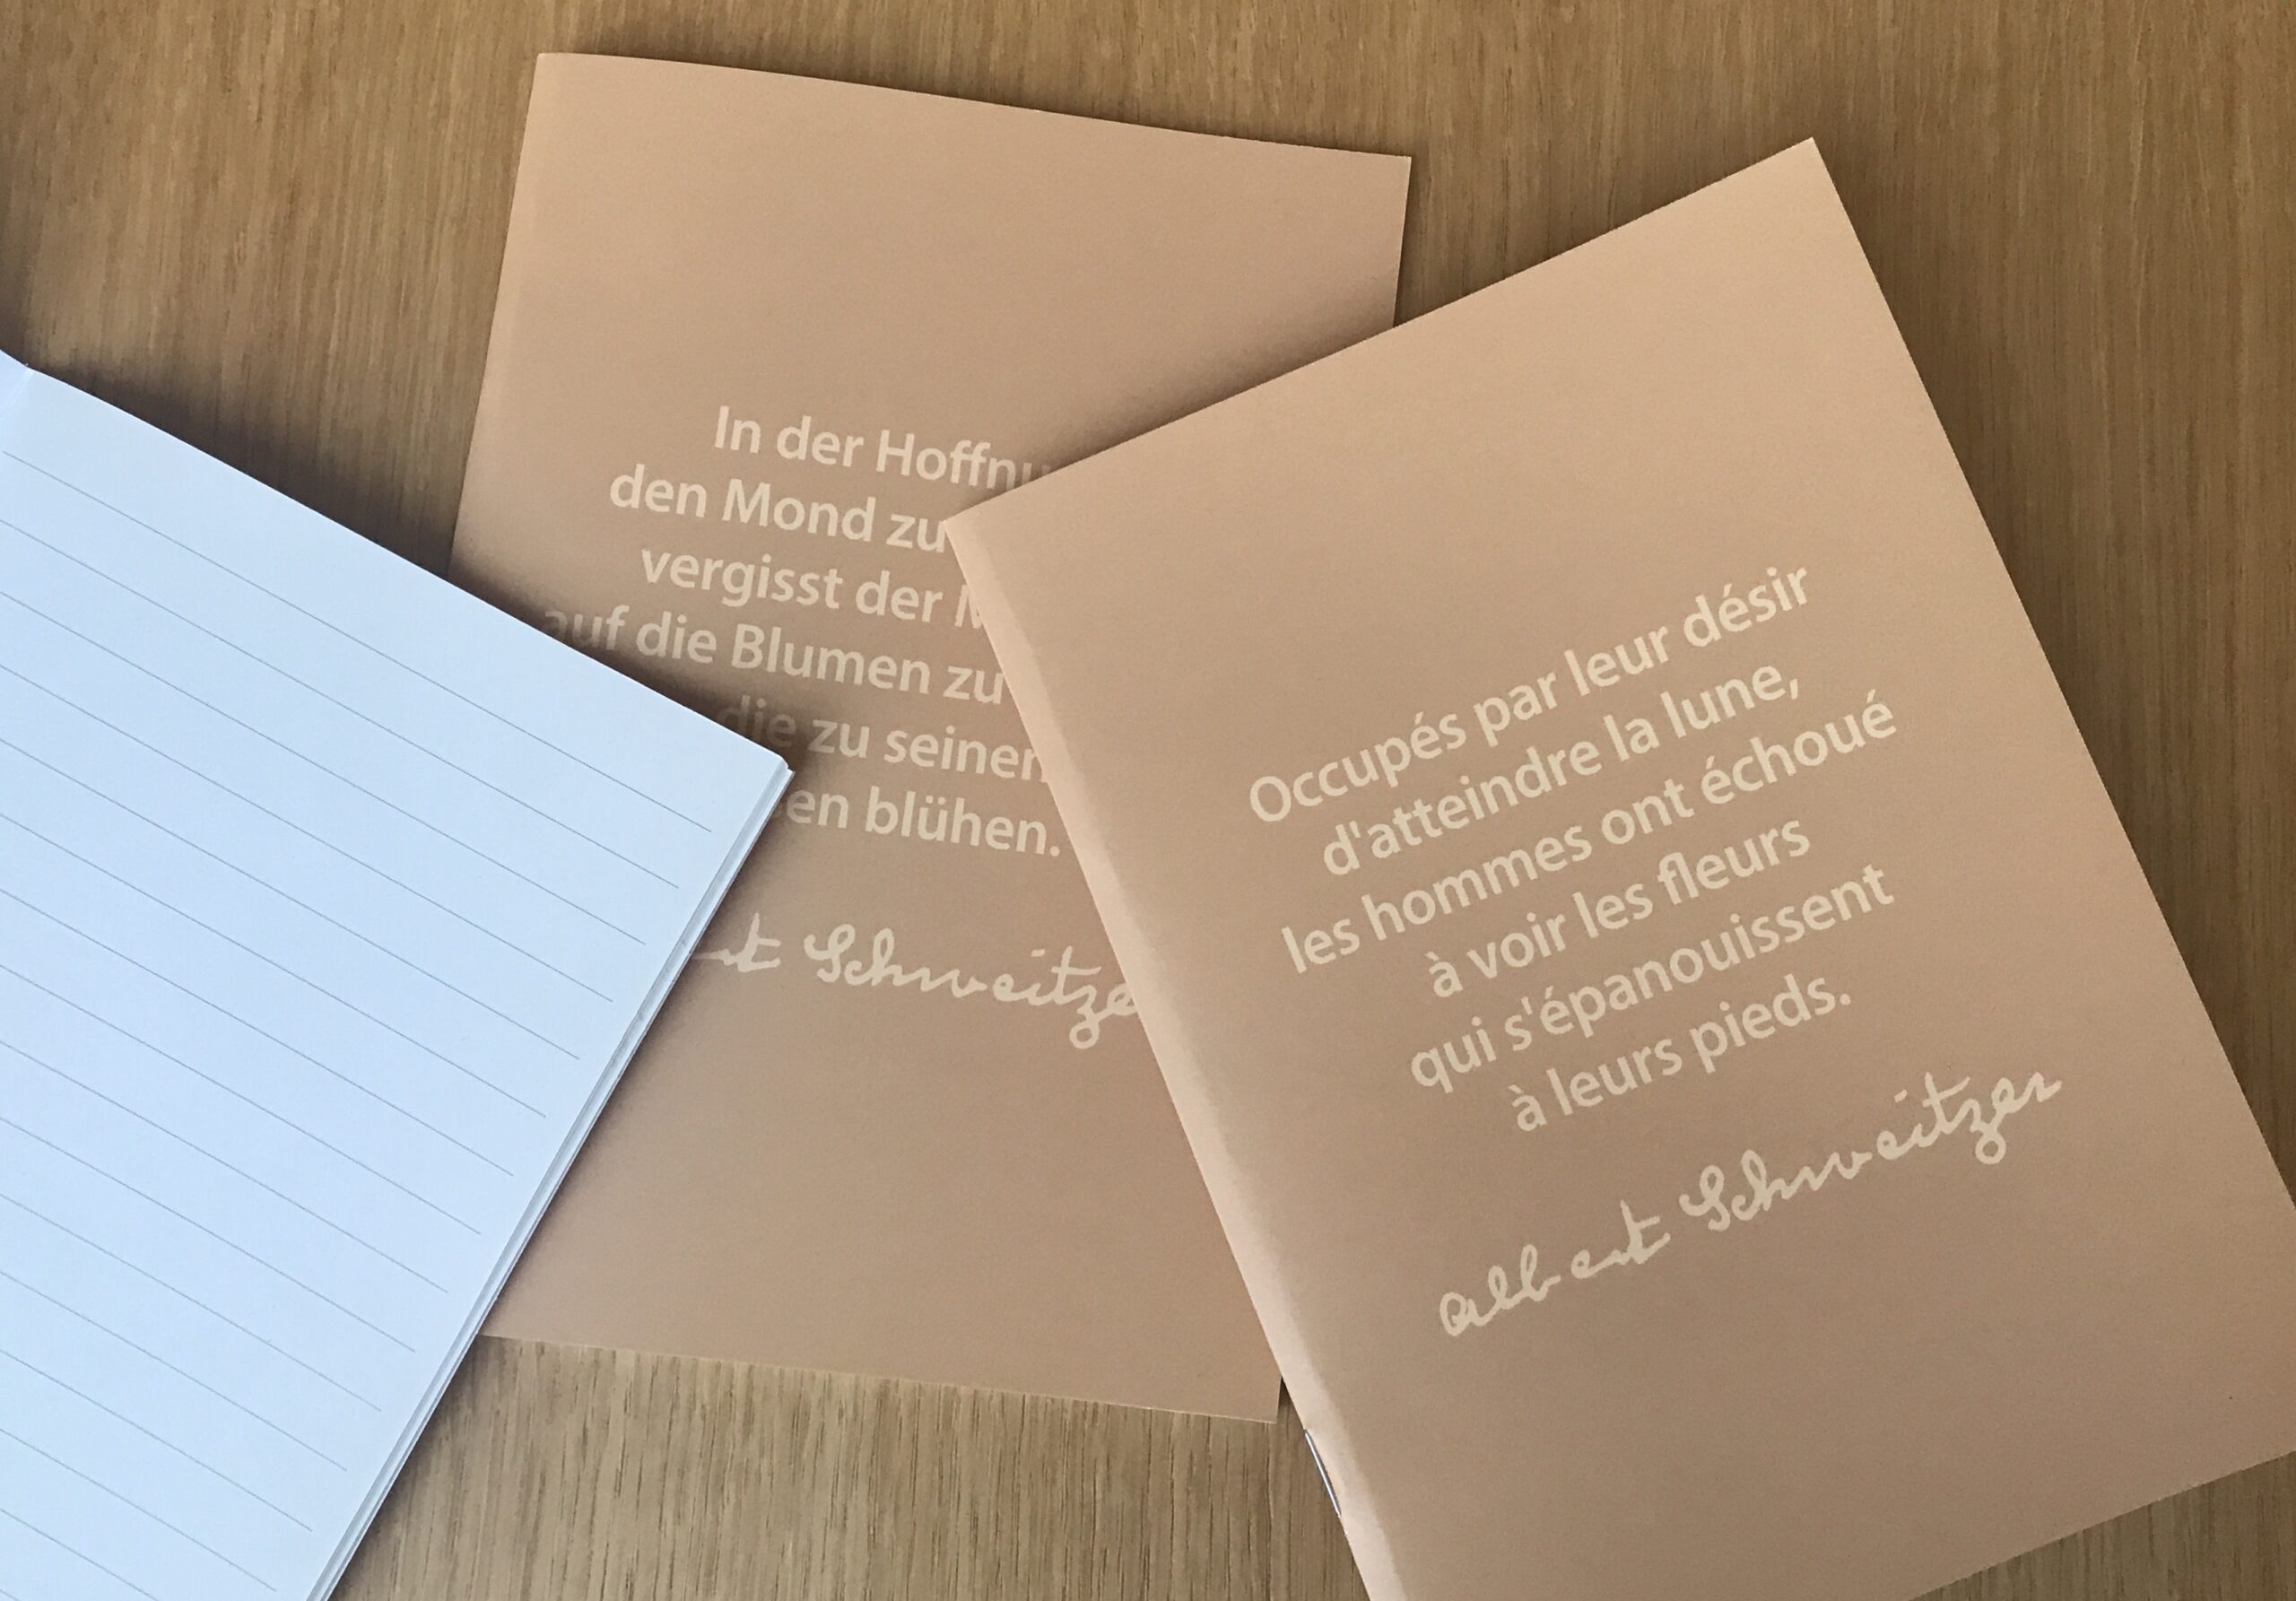 In der
den Mond zu
vergisst der
auf die Blumen zu
die zu seinen
blühen.
Schweitzer
Occupés par leur désir
d'atteindre la lune,
les hommes ont échoué
à voir les fleurs
qui s'épanouissent
à leurs pieds.
Albert Schweitzer